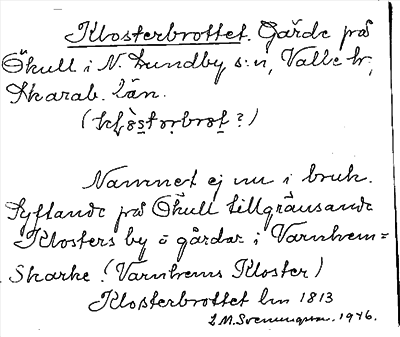 Klosterbrottet. Gärde på
Ökull i N. Lundby s:n, Valle hr,
Skarab. län.
Namnet ej nu i bruk.
Syftande på Ökull tillgränsande
Klosters by o gårdar i Varnhem=
Skarke. (Varnhems Kloster)
Klosterbrottet lm 1813
1946.